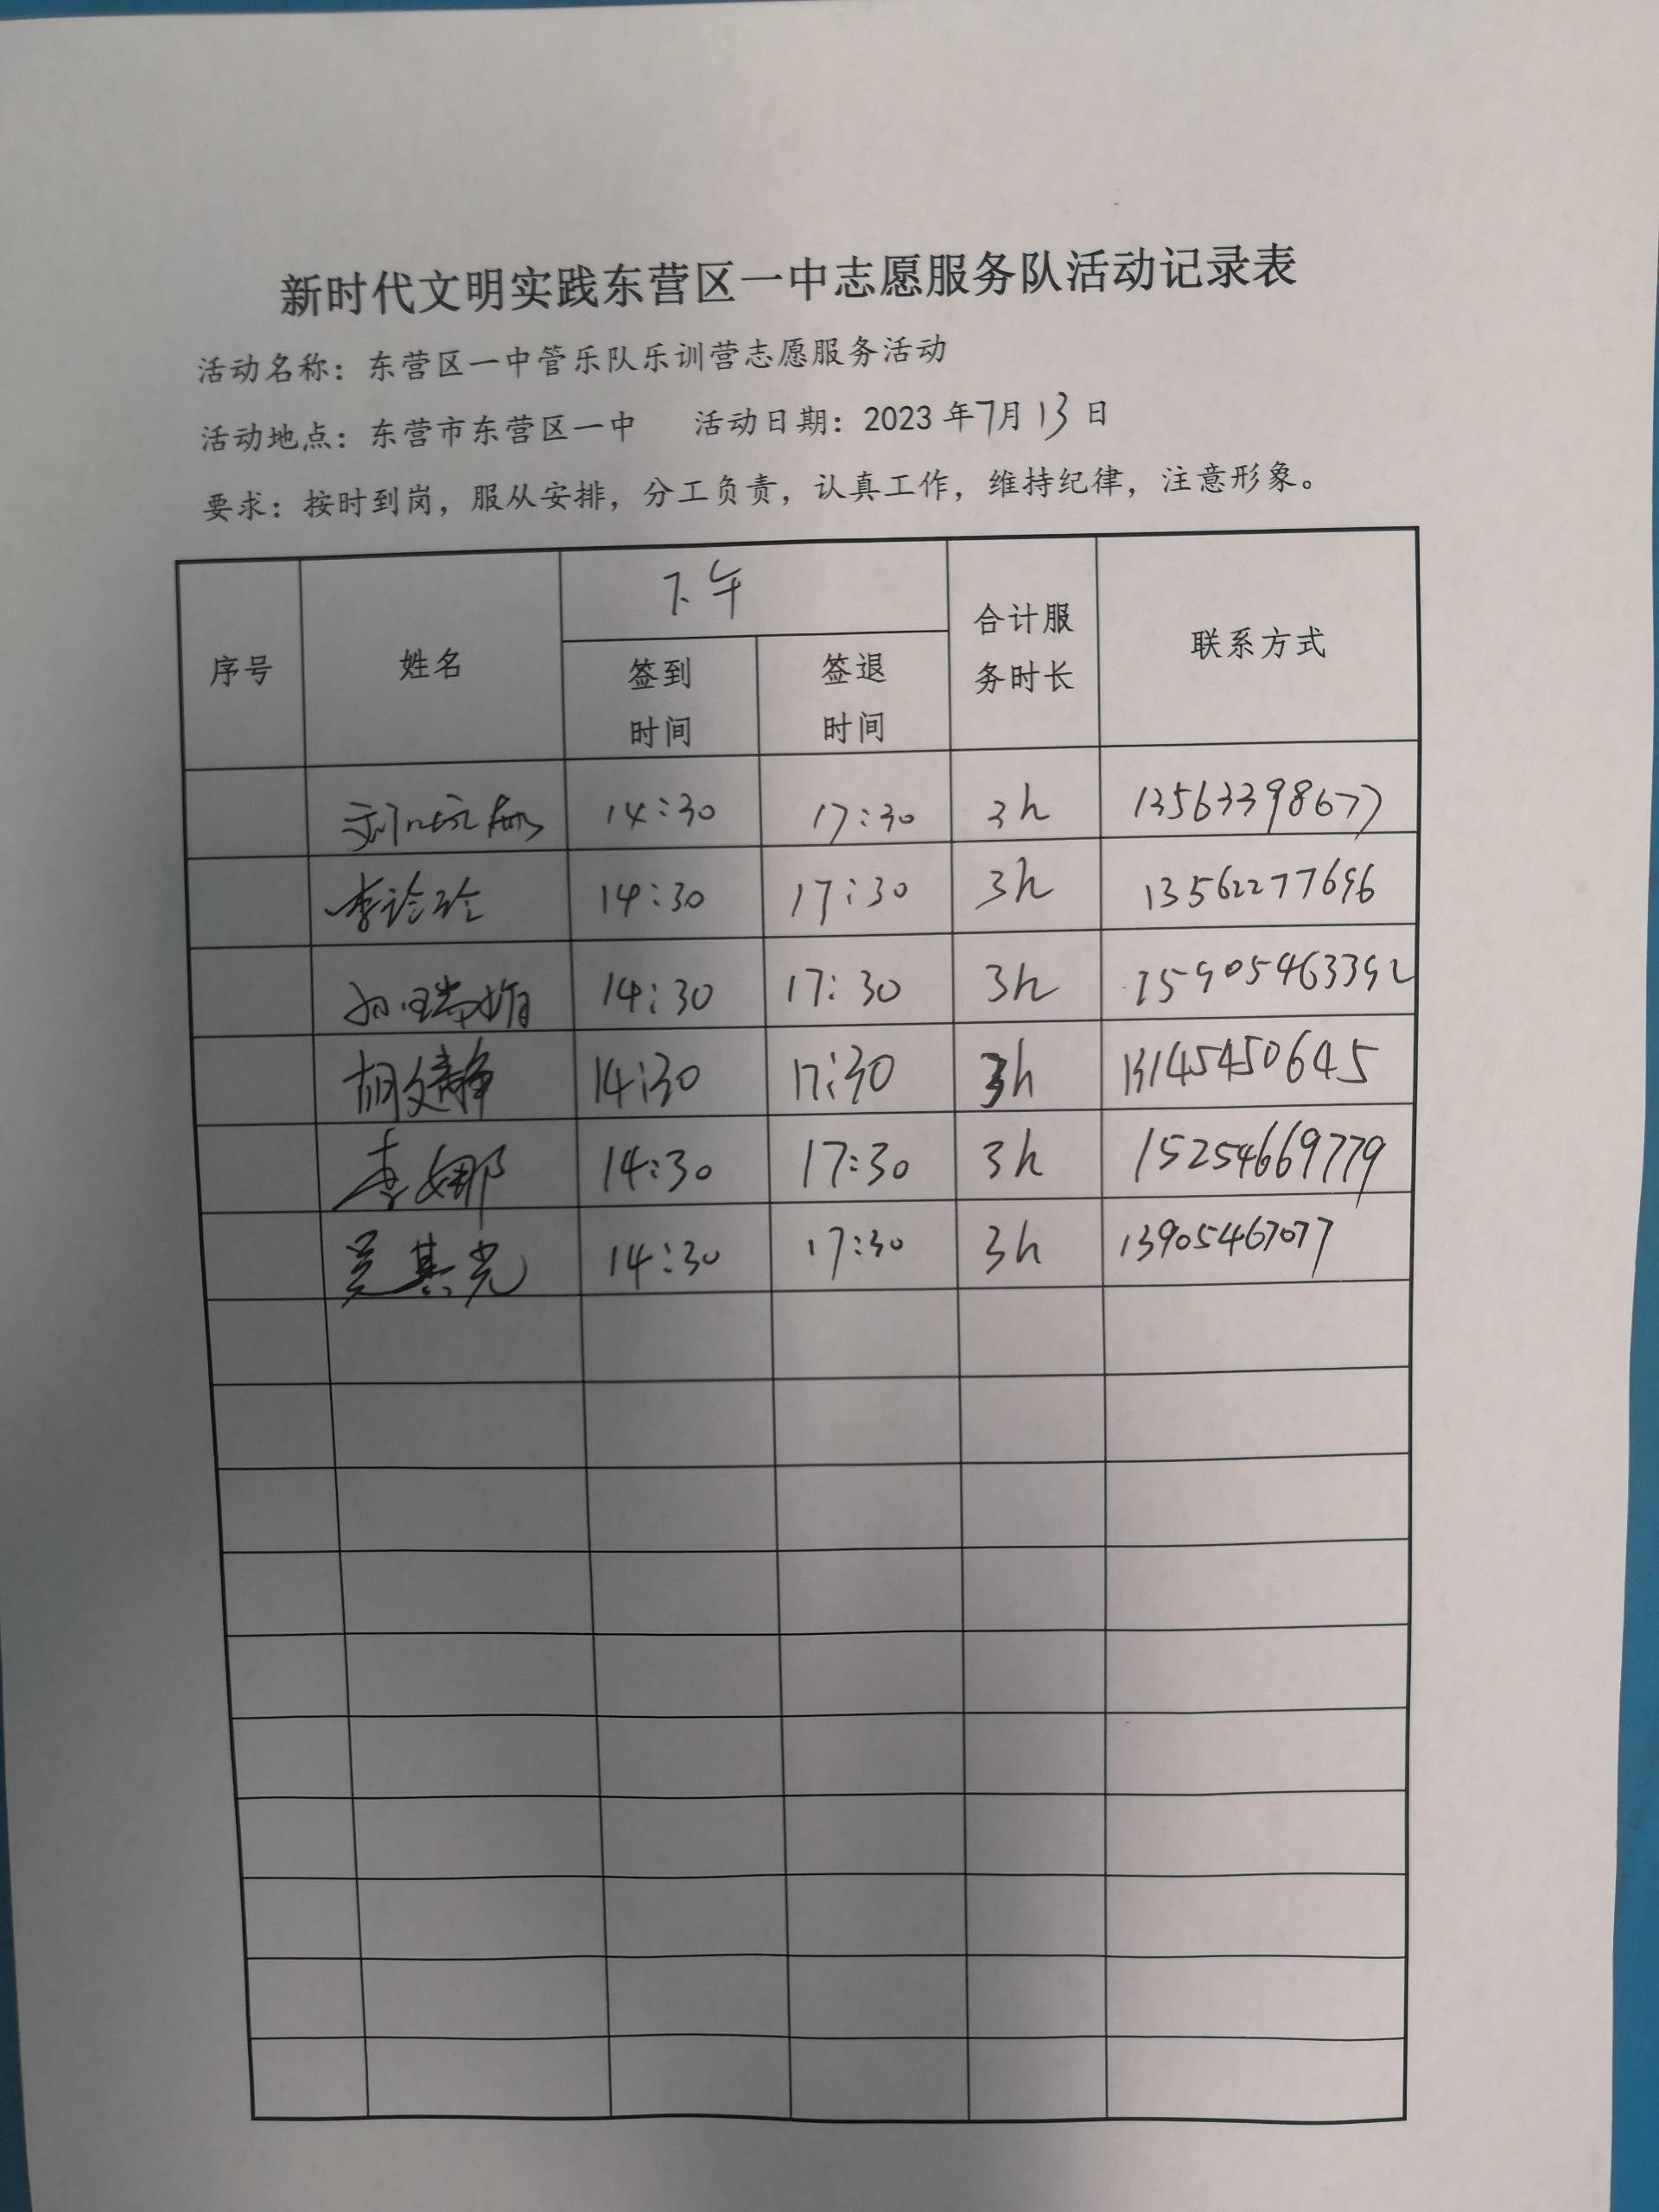 新时代文明实践东营区一中志愿服务队活动记录表
活动名称：东营区一中管乐队乐训营志愿服务活动
活动地点：东营市东营区一中 活动日期：2023年7月13日
要求：按时到岗，服从安排，分工负责，认真工作，维持纪律，注意形象。
序号 姓名 下午 合计服务时长 联系方式
签到时间 签退时间
14:30 17:30 3h 13563398677
14:30 17:30 3h 13562277696
14:30 17:30 3h 15905463392
胡文静 14:30 17:30 3h 13145450645
李娜 14:30 17:30 3h 15254669779
吴其光 14:30 17:30 3h 13905467077